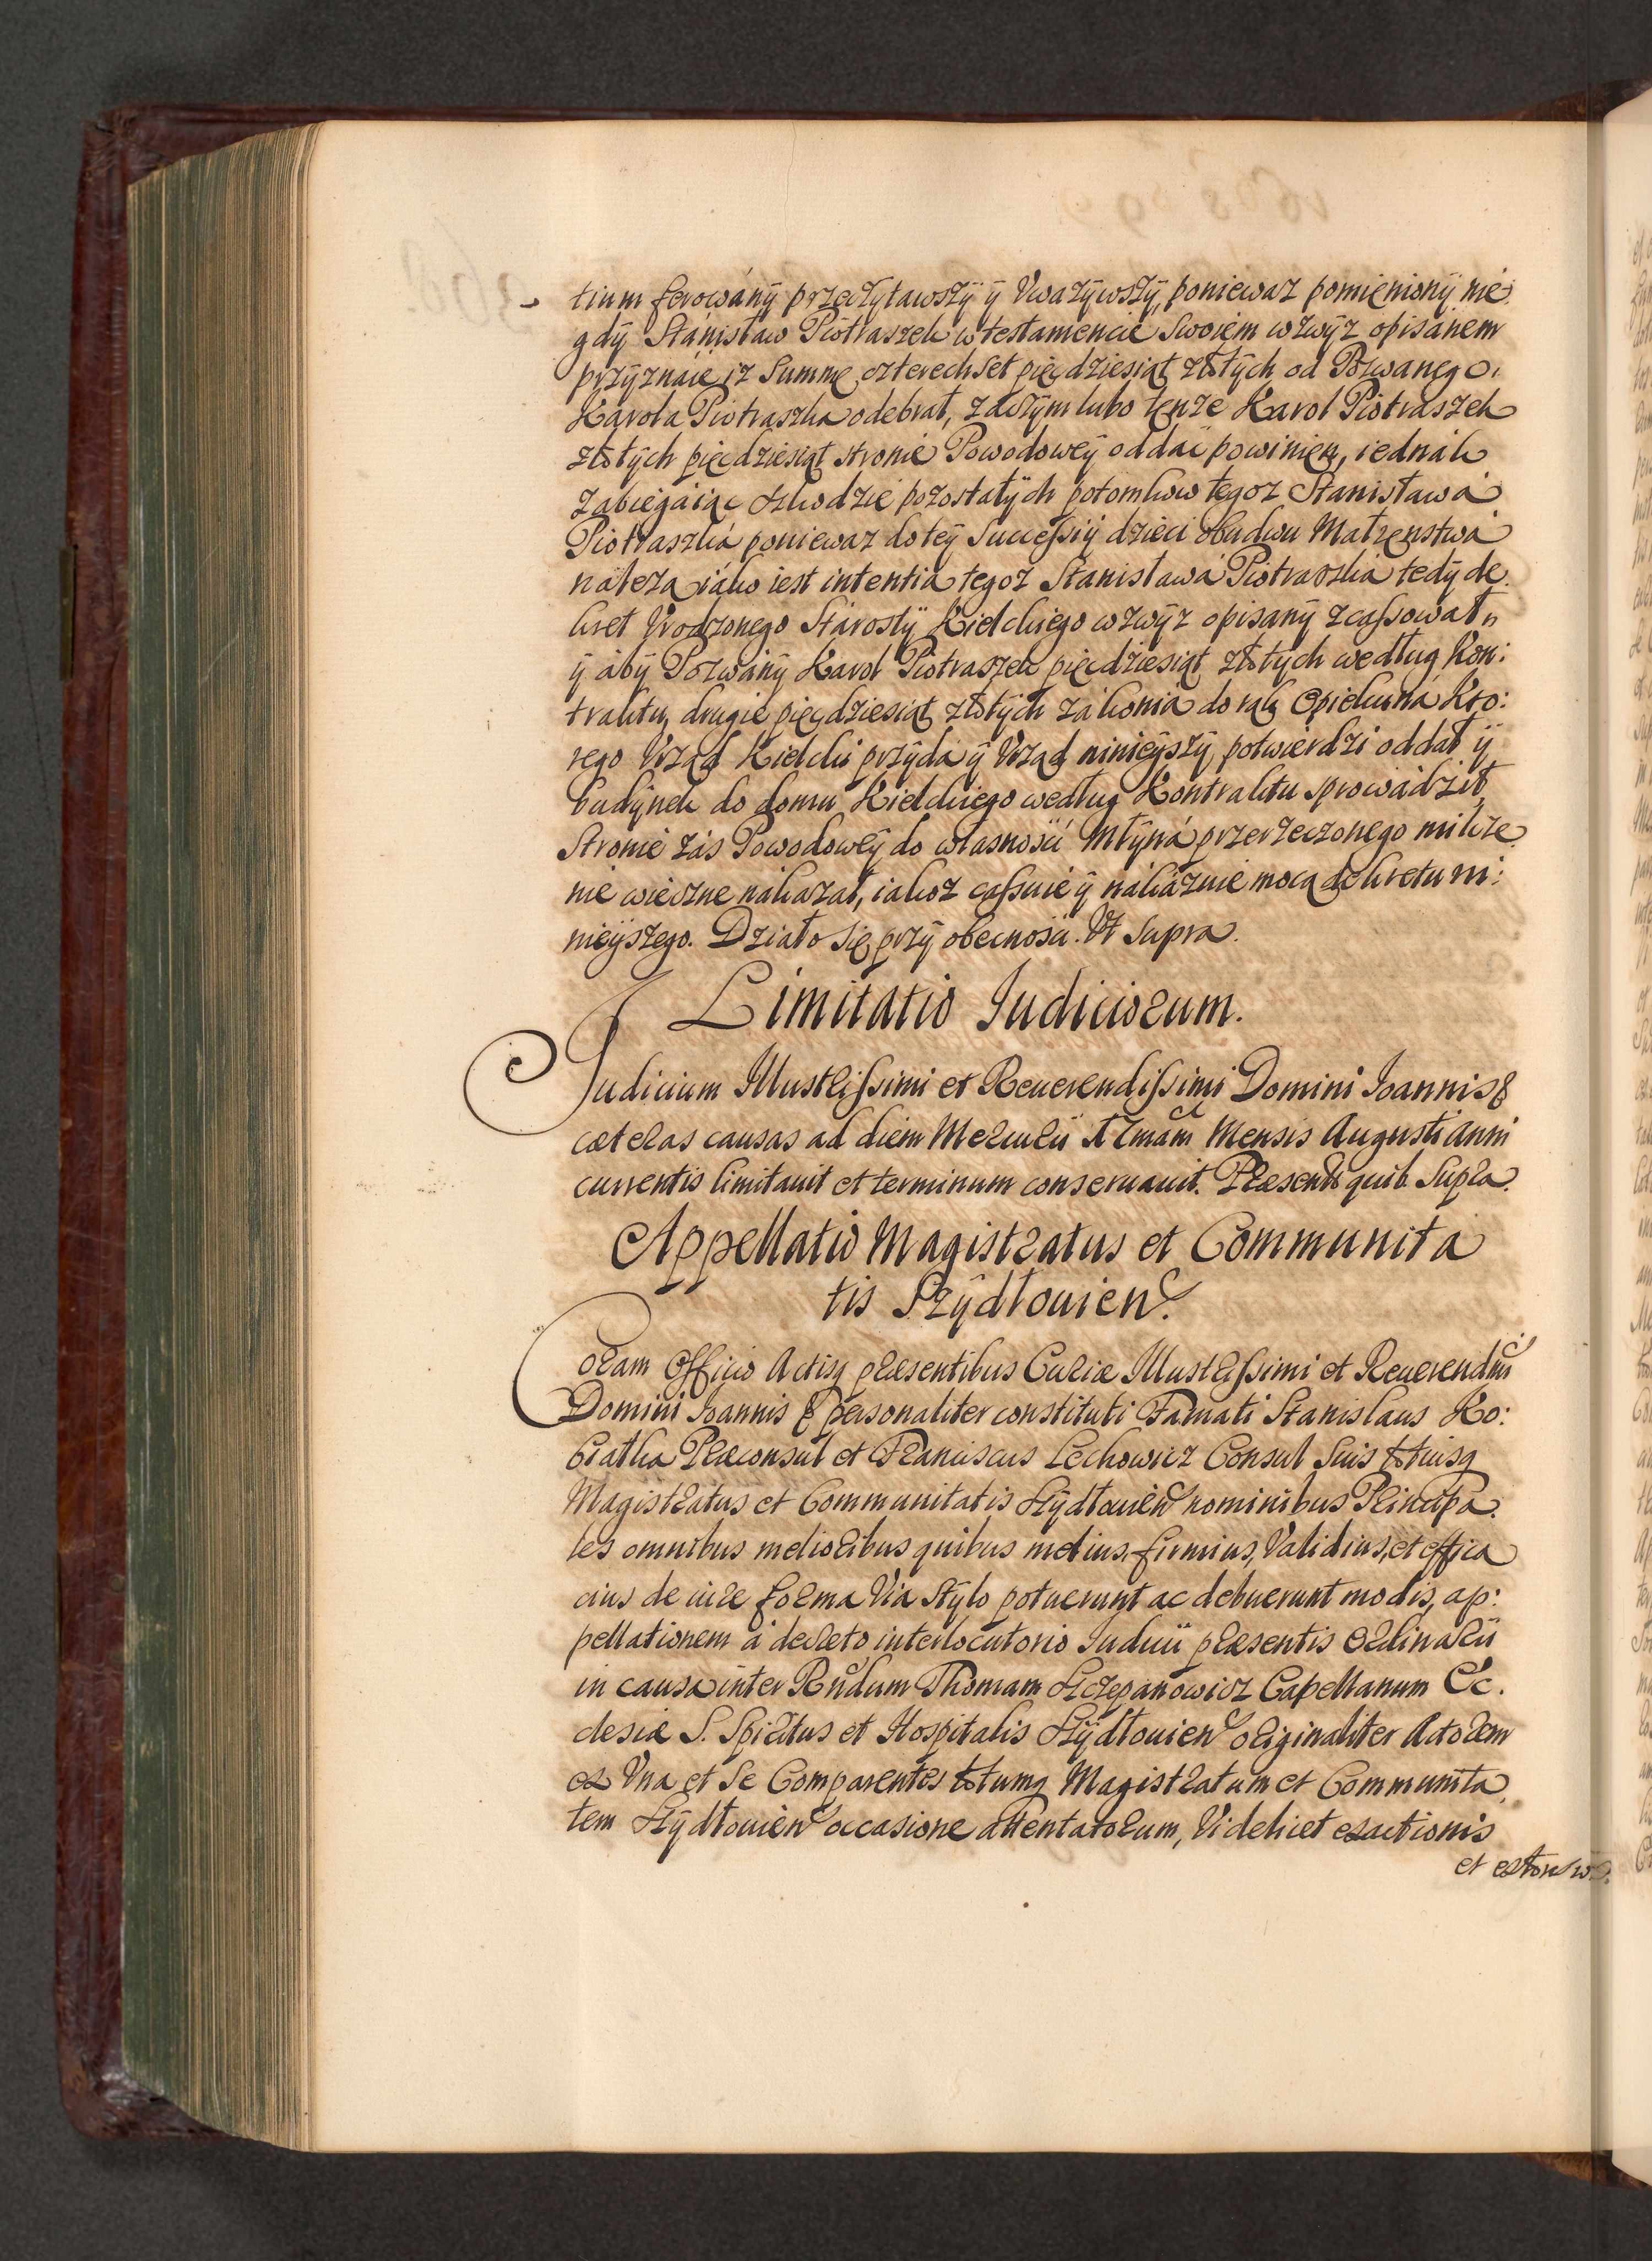 tium ferowáný przeczýtawszÿ ý Vwazýwszý, poniewaz pomięnionÿ nie
gdý Stánisław Piotraszek w testamencie swoięm wzwýz opisánem
przýznaie, iz Summę czterechset pięcdziesiąt złotých od Pozwanego
Karola Piotraszka odebrał, zaczým lubo tęnze Karol Piotraszek
złotých pięcdziesiąt stronie Powodowéý oddać powinięn, iednák
zabiegáiąc szkodzie pozostałých potomkow tegoz Stanisława
Piotraszká poniewaz do teý Successiÿ dzieci obudwu Małzęnstwá
náleza iáko iest intentia tegoz Stanisława Piotraszka tedý de
kret Vrodzonego Stárostÿ Kielckiego wzwýz opisaný zcassował,
ý abý Pozwáný Karol Piotraszek pięcdziesiąt złotých według Kon:
traktu, drugie pięcdziesiąt złotých zá konia do rąk Opiekuná Kto:
rego Vrząd Kielcki przýda ý Vrząd ninieýszý potwierdzi oddał ÿ
budýnek do domu Kielckiego według Kontraktu sprowádził,
Stronie zás Powodoweý do własności Młýná przerzeczonego milcze
nie wieczne nákazał, iakoz cassuie ý nákázuie mocą dekretu ni:
nieÿszego. Działo się przý obecności. Vt Supra.
Limitatio Iudiciorum.
Judicium Illustrissimi et Reuerendissimi Domini Ioannis &
cæteras causas ad diem Mercurii Xmam Mensis Augusti anni
currentis limitauit et terminum conseruauit. Præsentib quib. Supra.
Appellatio Magistratus et Communita
tis Szÿdłouien.
Coram Officio Actisq præsentibus Curiæ Illustrissimi et Reuerendmi
Domini Ioannis & personaliter constituti Famati Stanislaus Ko:
bratka Præconsul et Franciscus Lechowicz Consul Suis totiusq
Magistratus et Communitatis Szÿdłouien nominibus Principa
les omnibus melioribus quibus melius, firmius, Validius, et effica
cius de iure forma Via Stÿlo potuerunt ac debuerunt modis, ap:
pellationem a decreto interlocutorio Iudicii præsentis Ordinarii
in causa inter Rndum Thomam Szczepanowicz Capellanum Ec.
clesiæ S. Spiritus et Hospitalis Szÿdłouien originaliter Actorem
ex Vna et Se Comparentes totumq Magistratum et Communita
tem Szÿdłouien occasione attentatorum, Videlicet exactionis
et